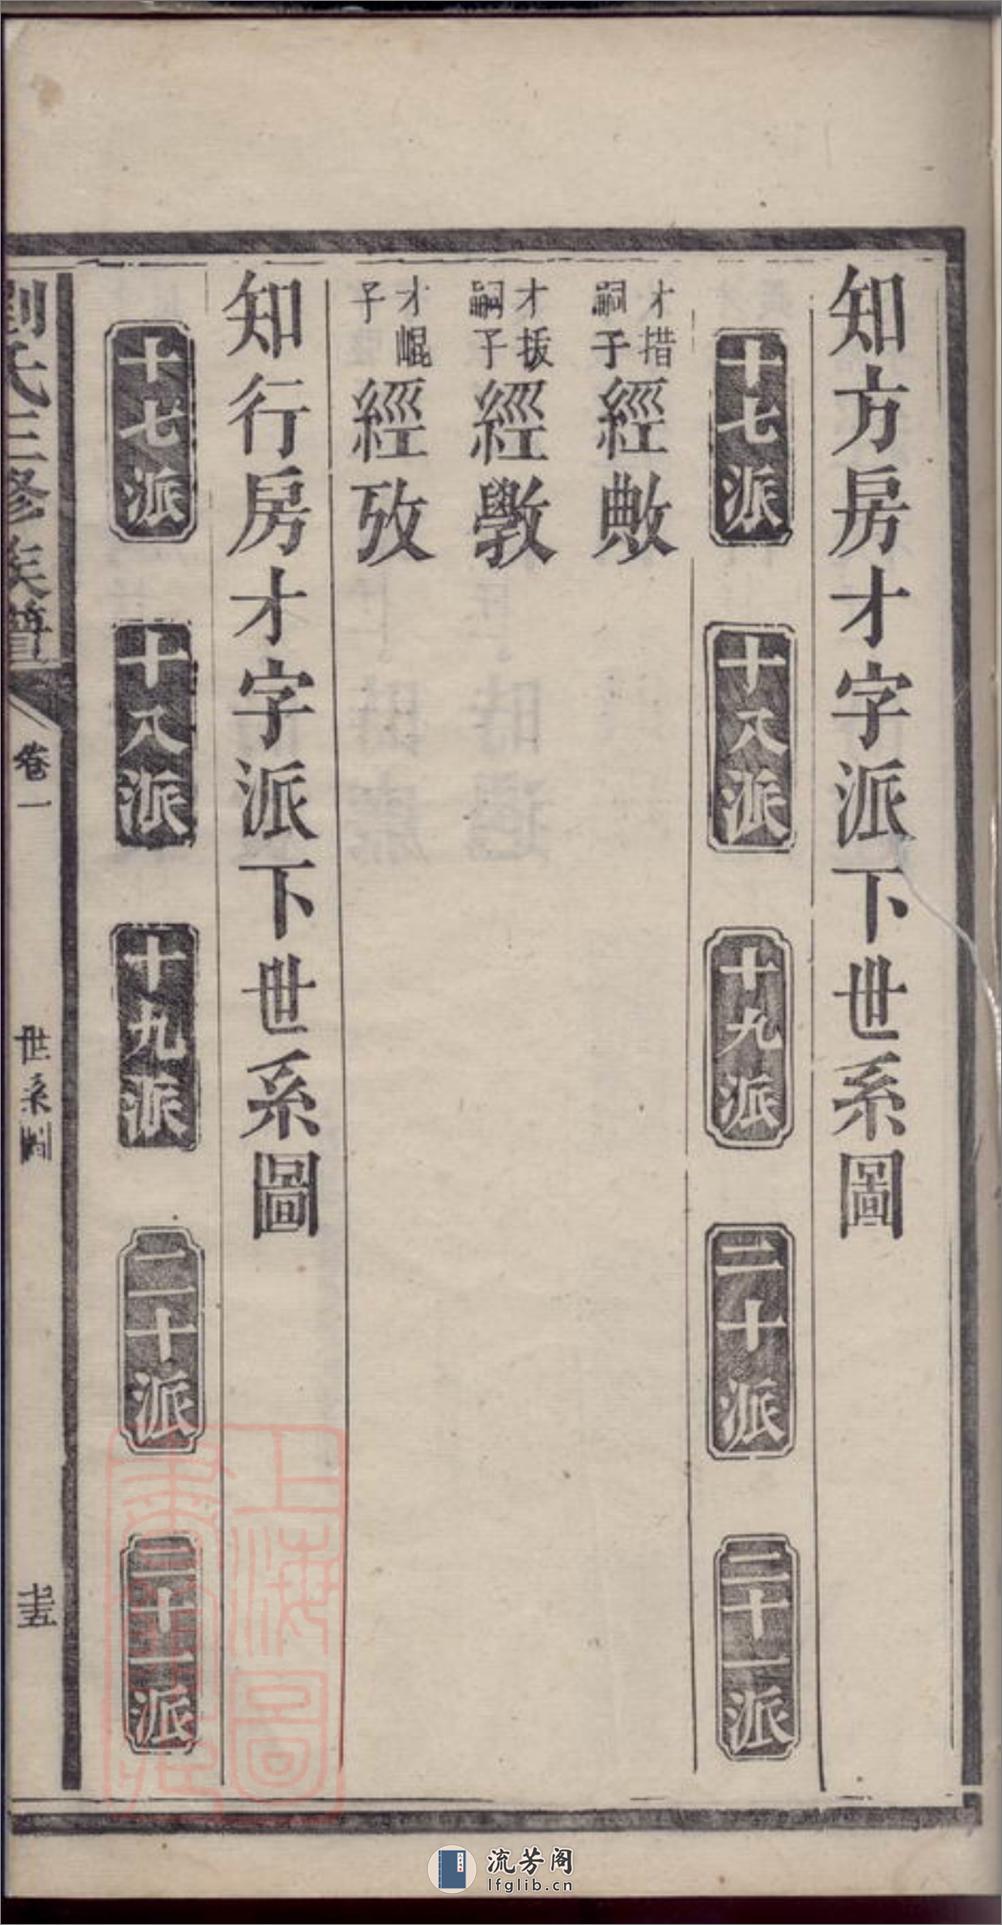 知方房才字派下世系圖
十七派 十八派 十九派 二十派 二十一派
才措嗣子 經敟
才掁嗣子 經斅
才崐子 經攷
知行房才字派下世系圖
十七派 十八派 十九派 二十派 二十一派
劉氏三修族譜 卷一 世系圖 十五
上海圖
流芳阁
lfglib.cn